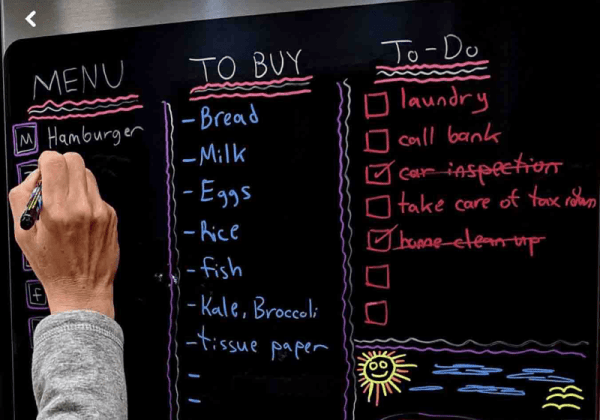 MENU
M Hamburger
f
TO BUY
- Bread
- Milk
- Eggs
- Rice
- fish
- Kale, Broccoli
- tissue paper
-
-
To-Do
laundry
call bank
car inspection
take care of tax return
house clean up